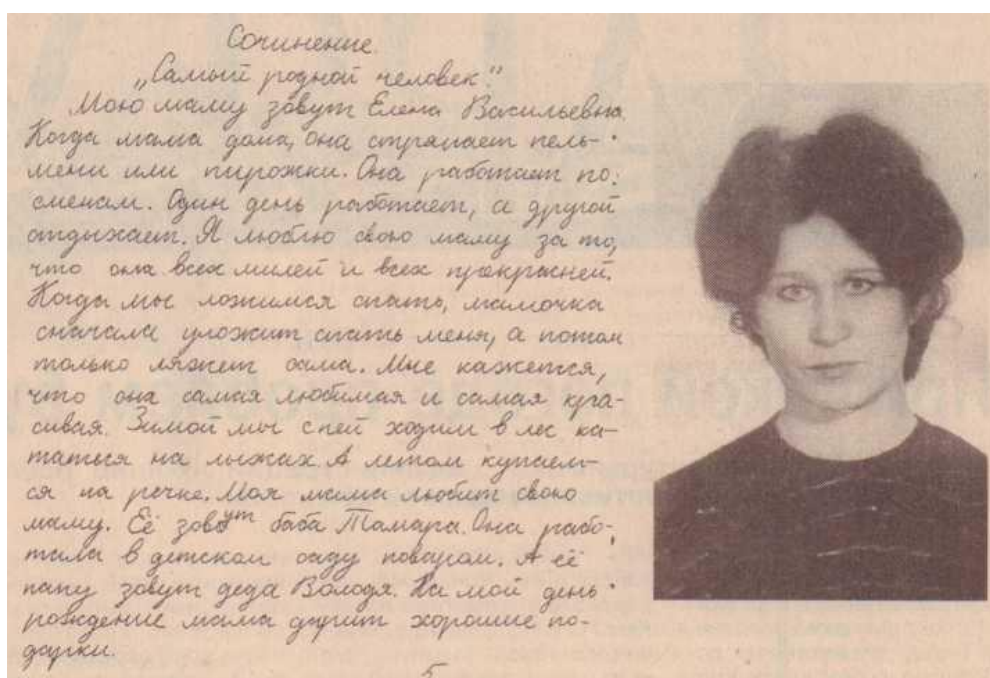 Сочинение.
„Самый родной человек."
Мою маму зовут Елена Васильевна.
Когда мама дома, она стряпает пель-
мени или пирожки. Она работает по
сменам. Один день работает, а другой
отдыхает. Я люблю свою маму за то,
что она всех милей и всех прекрасней.
Когда мы ложимся спать, мамочка
сначала уложит спать меня, а потом
только ляжет сама. Мне кажется,
что она самая любимая и самая кра-
сивая. Зимой мы с ней ходим в лес ка-
таться на лыжах. А летом купаем-
ся на речке. Моя мама любит свою
маму. Её зовут баба Тамара. Она рабо-
тала в детском саду поваром. А её
папу зовут деда Володя. На мой день
рождение мама дарит хорошие по-
дарки.
5